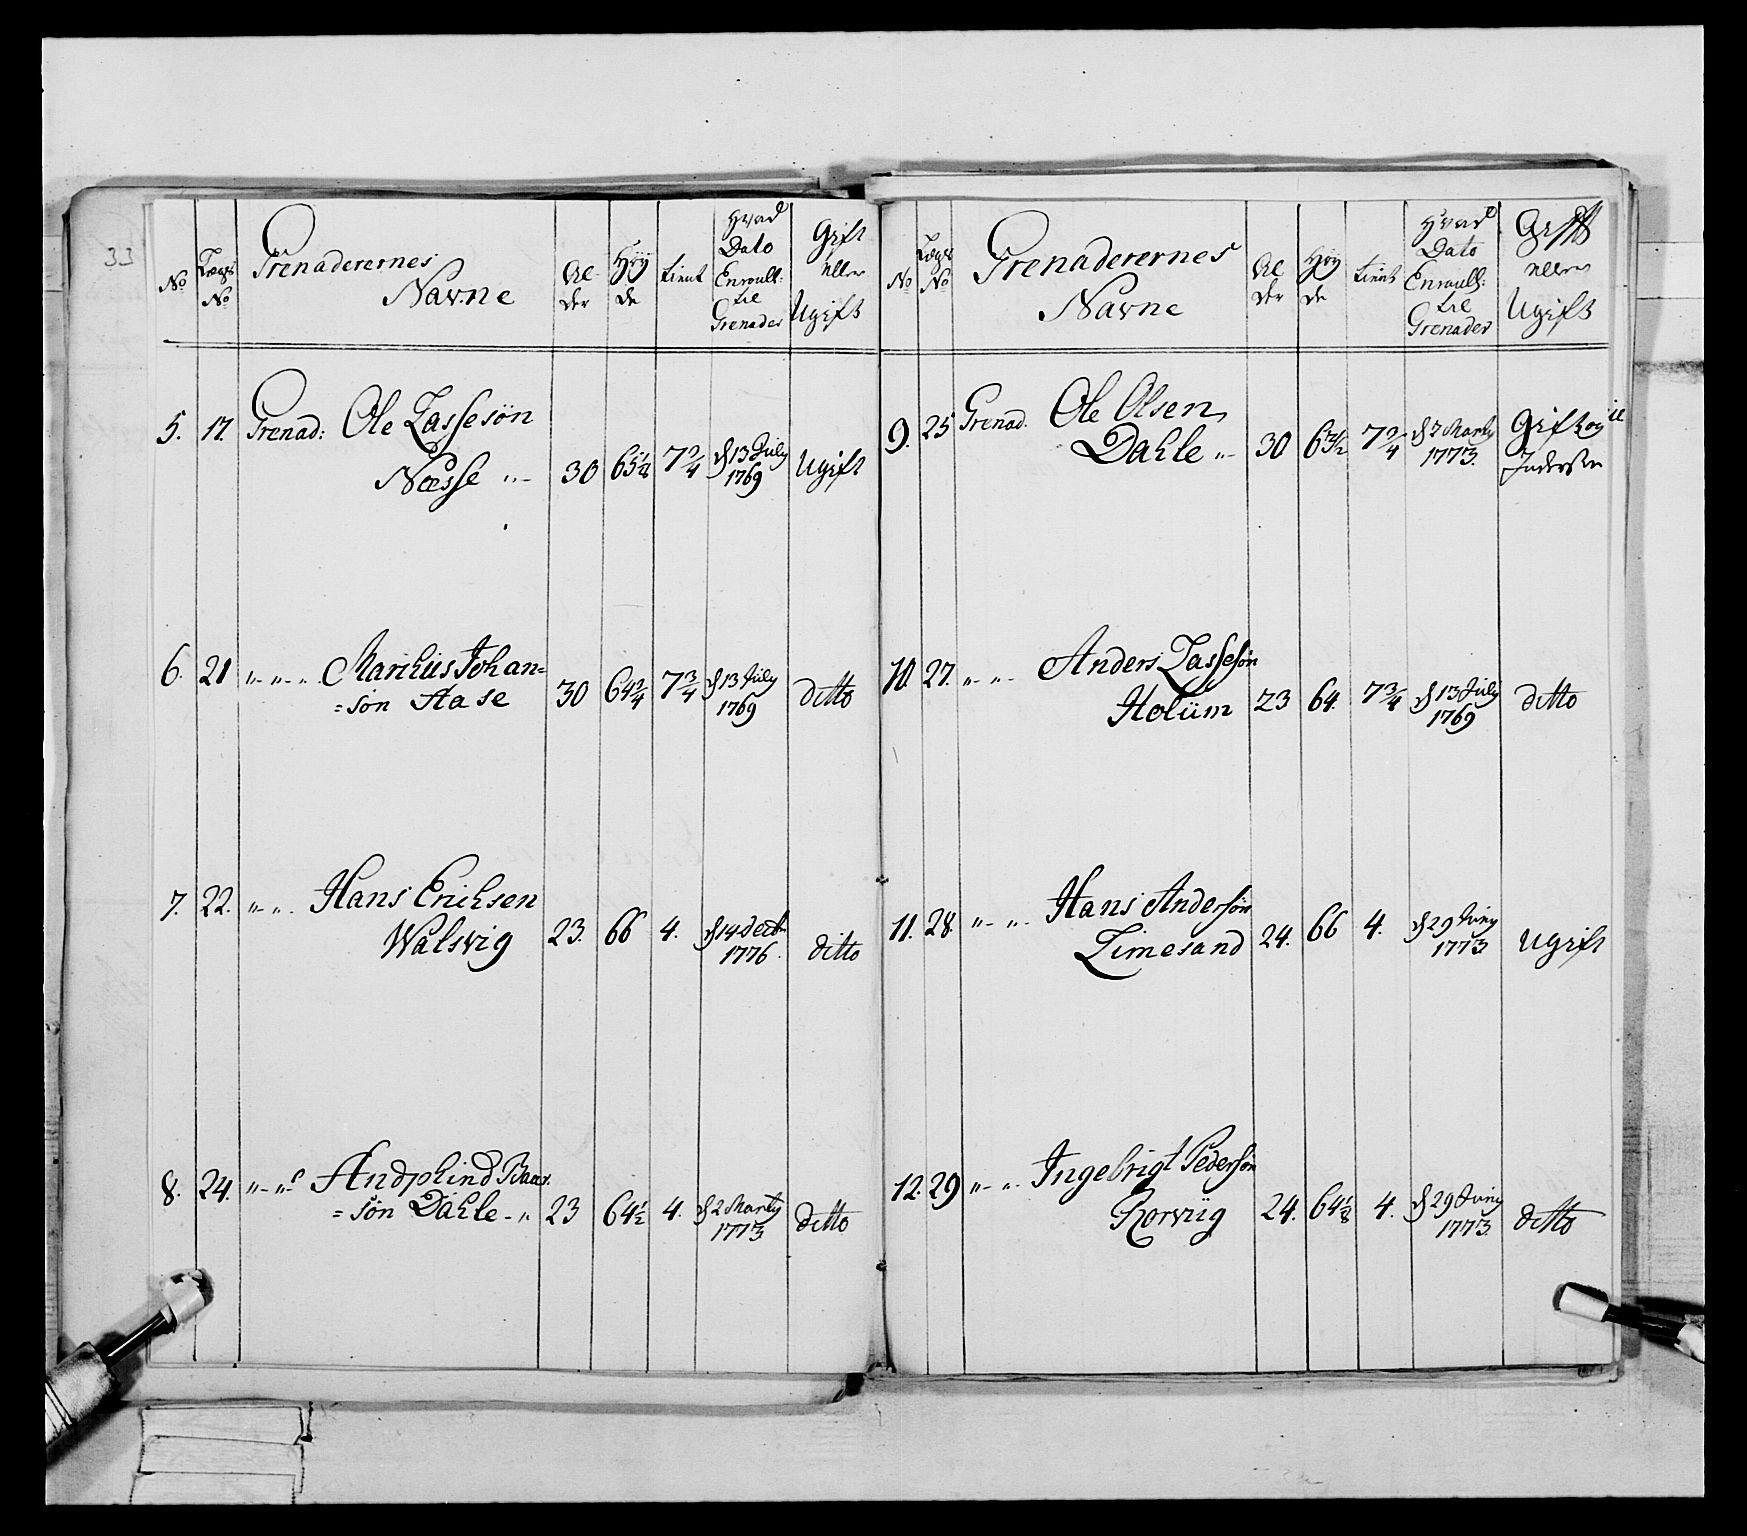 33
No
Lægs No
Grenaderernes Navne
Al-der
Høy de
tient
Hvad Dato Enroull: til Grenader
Gift eller Ugift
5. 17. Grenad: Ole Lassesøn
Næsse 30 65 7 3/4 d 13 July 1769 Ugift
6. 21 Marchus Johan=
=søn Aase 30 64 3/4 7 3/4 d 13 July 1769 ditto
7. 22. Hans Erichsen
Walsvig 23. 66 4. d 14 Decbr 1776. ditto
8. 24. Baar
=søn Dahle 23 64 1/2 4. d 2 Marty 1773 ditto
No
Lægs No
Grenaderernes Navne
Al der
Høy de
tient
Hvad Dato Enroull: til Grenader
Gift eller Ugift
9. 25 Grenad. Ole Olsen
Dahle 30 7 3/4 d 2 Marty 1773. Gift og Inderster
10. 27. Anders Lassesøn
Holum 23 64. 7 3/4 d 13 July 1769 ditto
11. 28. Hans Andersøn
Limesand 24. 66 4. d 29 Juny 1773 Ugift
12. 29 Ingebrigt Pedersøn
Korviig 24. 64 1/8 4. d 29 Juny 1773. ditto